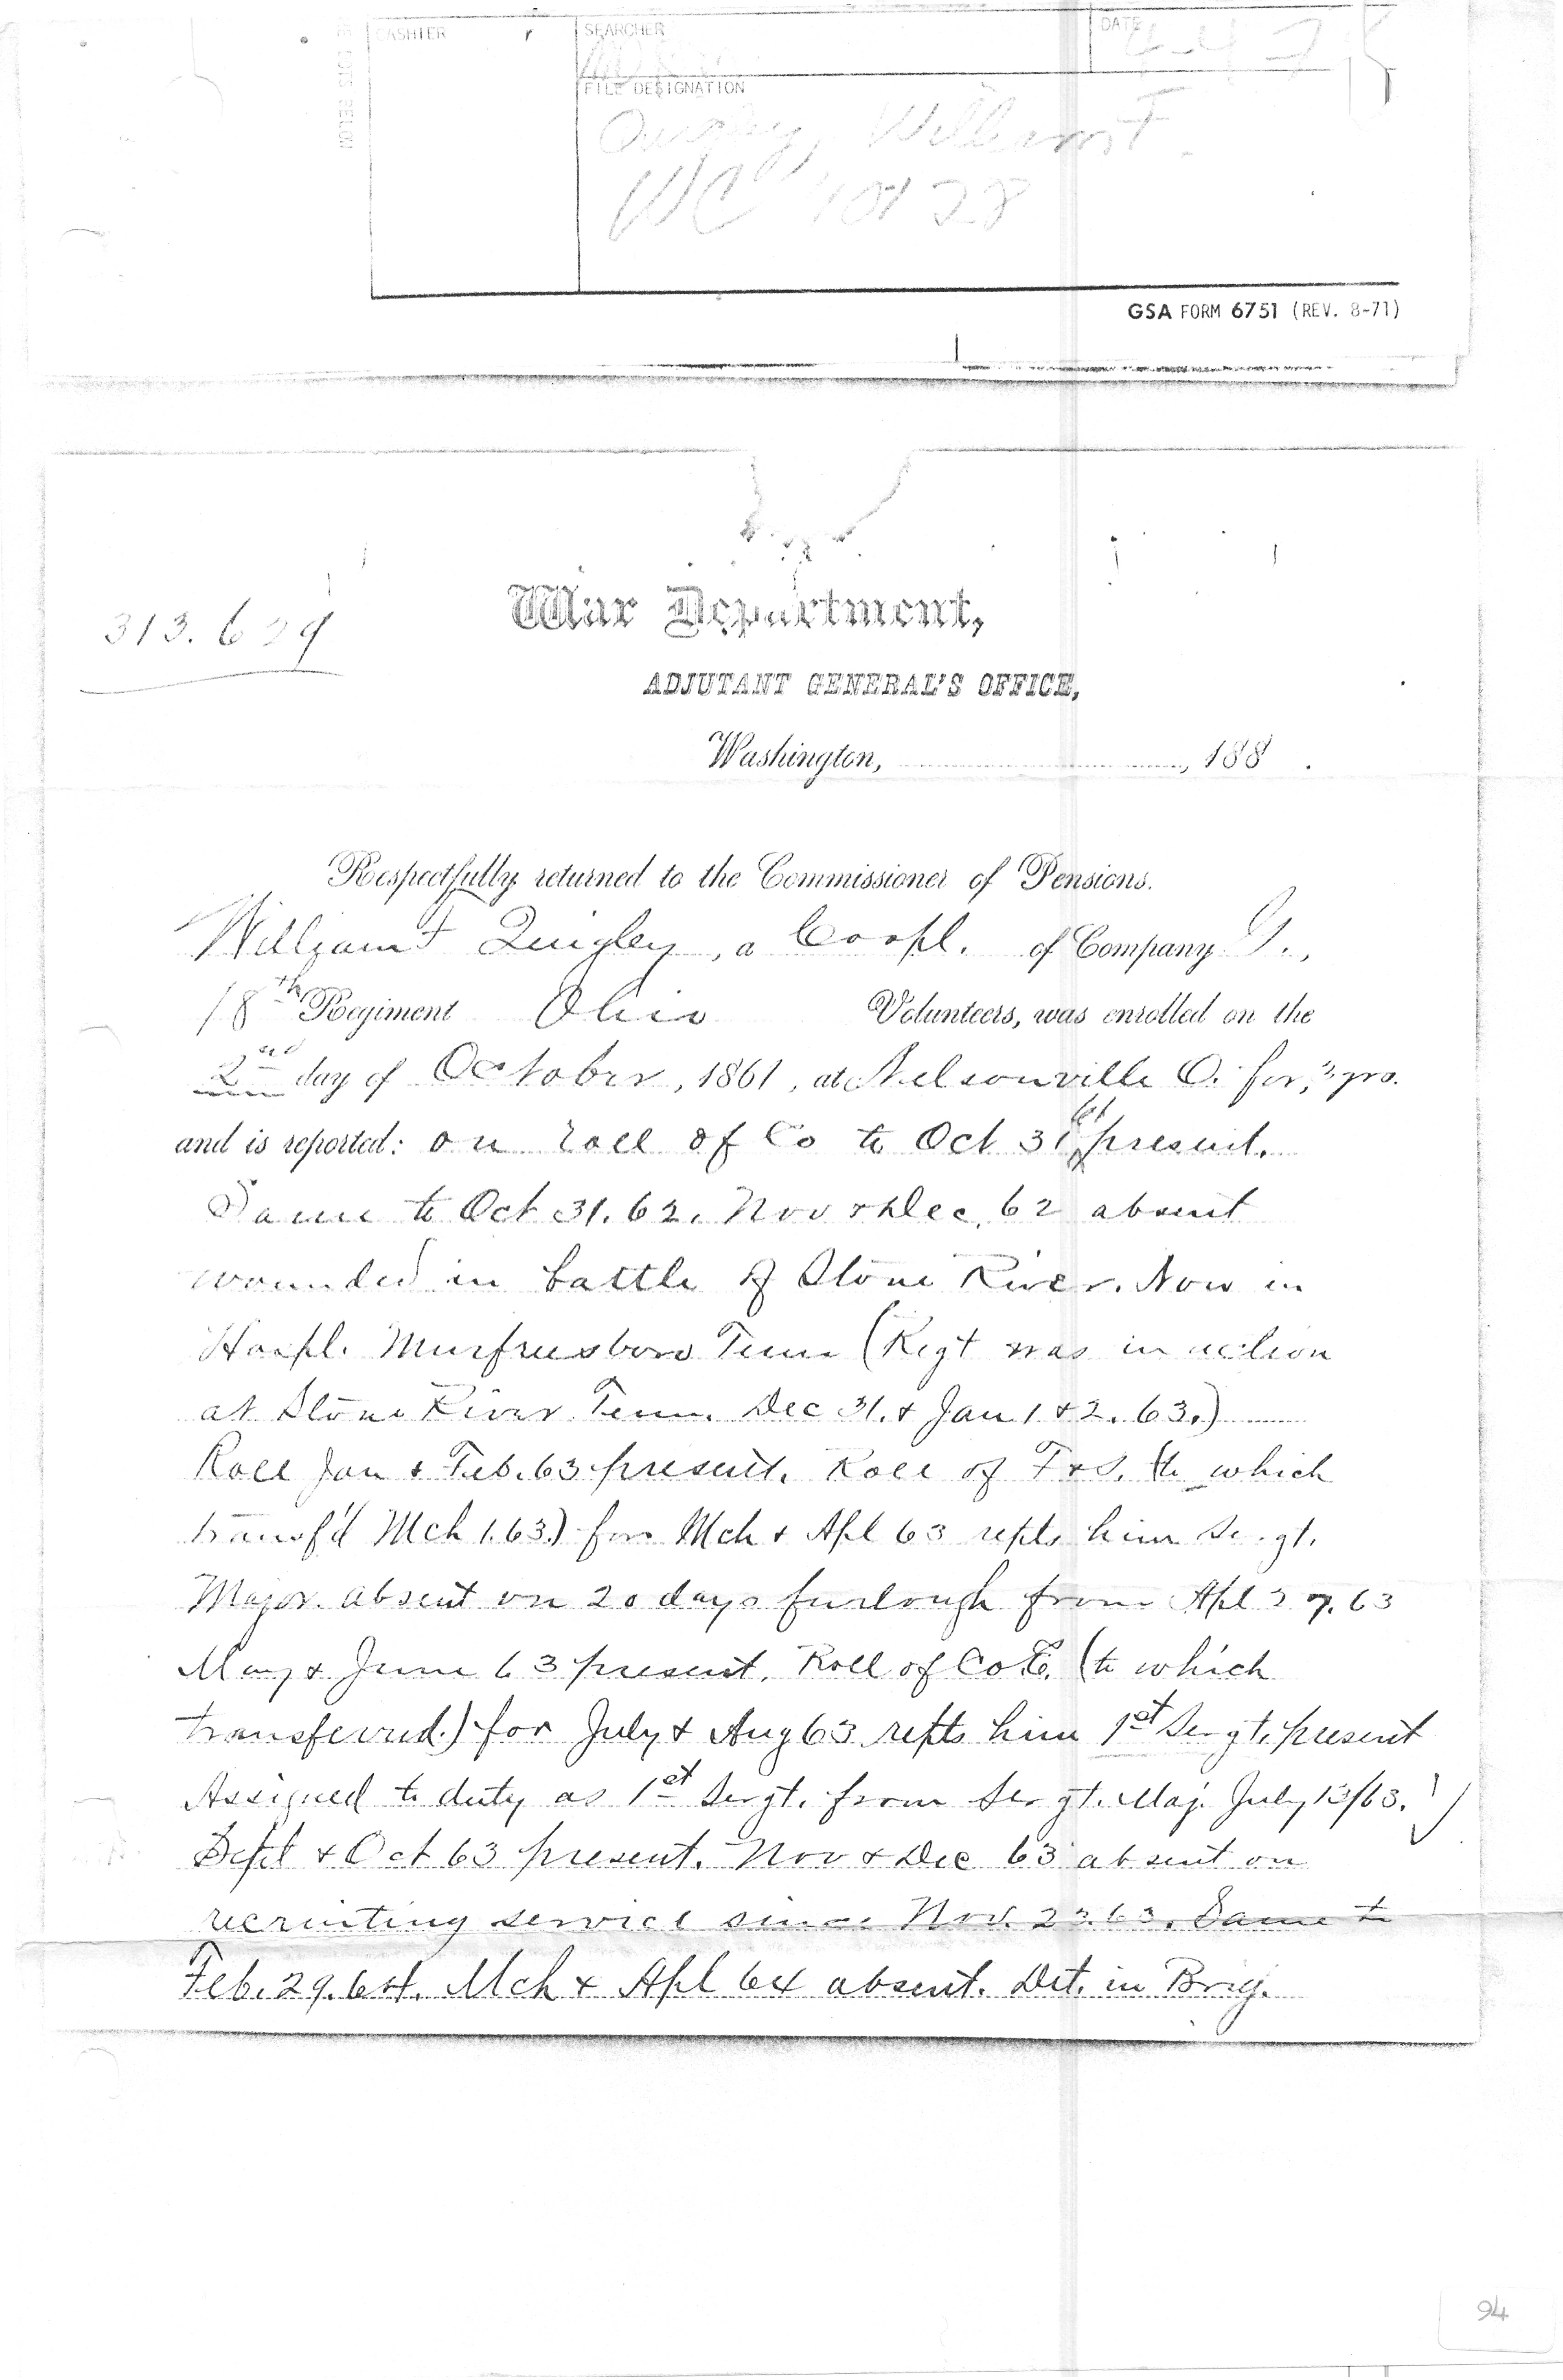 CASHIER SEARCHER DATE
FILE DESIGNATION
Quigley, William F.
WC
GSA FORM 6751 (REV. 8-71)
War Department,
313.629
ADJUTANT GENERAL'S OFFICE,
Washington, , 188 .
Respectfully returned to the Commissioner of Pensions.
William F Quigley, a Corpl. of Company G.,
18th Regiment Ohio Volunteers, was enrolled on the
2nd day of October, 1861, at Nelsonville O. for 3 yrs.
and is reported: on roll of Co to Oct 31 61 present.
Same to Oct 31. 62. Nov & Dec. 62 absent
wounded in battle of Stone River. Now in
Hospl. Murfreesboro Tenn (Regt was in action
at Stone River Tenn. Dec 31. & Jan 1 & 2. 63.)
Roll Jan & Feb. 63 present. Roll of F & S. (to which
transf'd Mch 1. 63.) for Mch & Apl 63 repts him Sergt.
Major. absent on 20 days furlough from Apl 27. 63
May & June 63 present. Roll of Co E. (to which
transferred.) for July & Aug 63 repts him 1st Sergt. present
Assigned to duty as 1st Sergt. from Sergt. Maj. July 13/63.
Sept & Oct 63 present. Nov & Dec 63 absent on
recruiting service since Nov. 23. 63. Same to
Feb. 29. 64. Mch & Apl 64 absent. Det. in Brig.
94